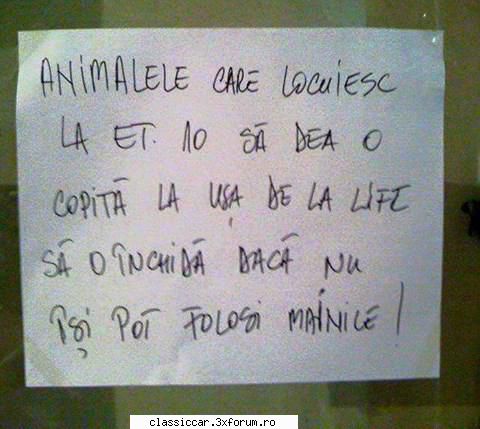 ANIMALELE CARE LOCUIESC
LA ET. 10 SĂ DEA O
COPITĂ LA UȘA DE LA LIFT
SĂ O ÎNCHIDĂ DACĂ NU
ÎȘI POT FOLOSI MAINILE!
classiccar.3xforum.ro